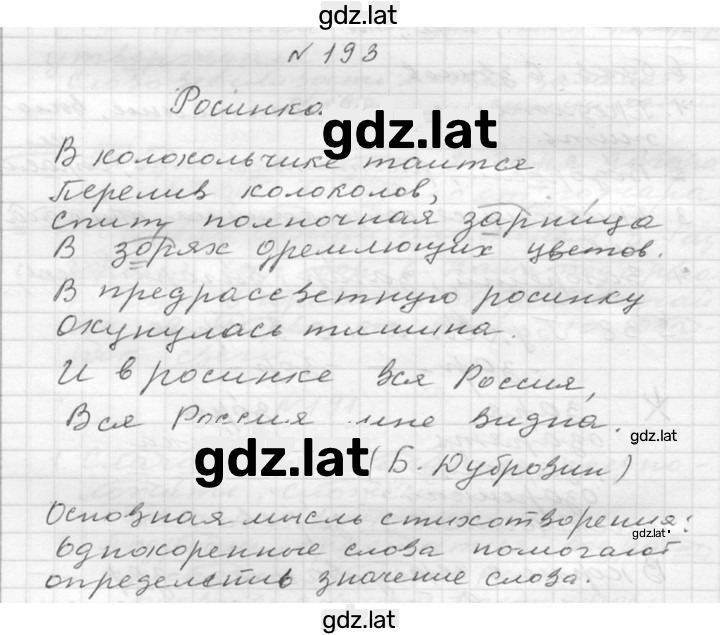 gdz.lat
№ 193
Росинка.
gdz.lat
В колокольчике таится
Перелив колоколов,
Спит полночная зарница
В зорях дремлющих цветов.
В предрассветную росинку
Окунулась тишина.
И в росинке вся Россия,
Вся Россия мне видна.
gdz.lat
gdz.lat (Б. Дубровин)
Основная мысль стихотворения:
gdz.lat
Однокоренные слова помогают
определить значение слова.
gdz.lat